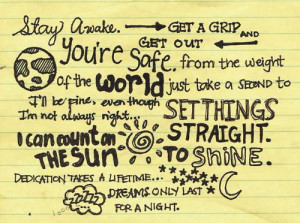 Stay Awake. GET A GRIP
AND
GET OUT
YOU'RE SAFE. from the weight
of the WORLD just take a SECOND to
I'll be fine, even though
I'm not always right...
SET THINGS
STRAIGHT.
I CAN COUNT ON
THE SUN
TO SHINE.
DEDICATION TAKES A LIFETIME...
DREAMS ONLY LAST
FOR A NIGHT.